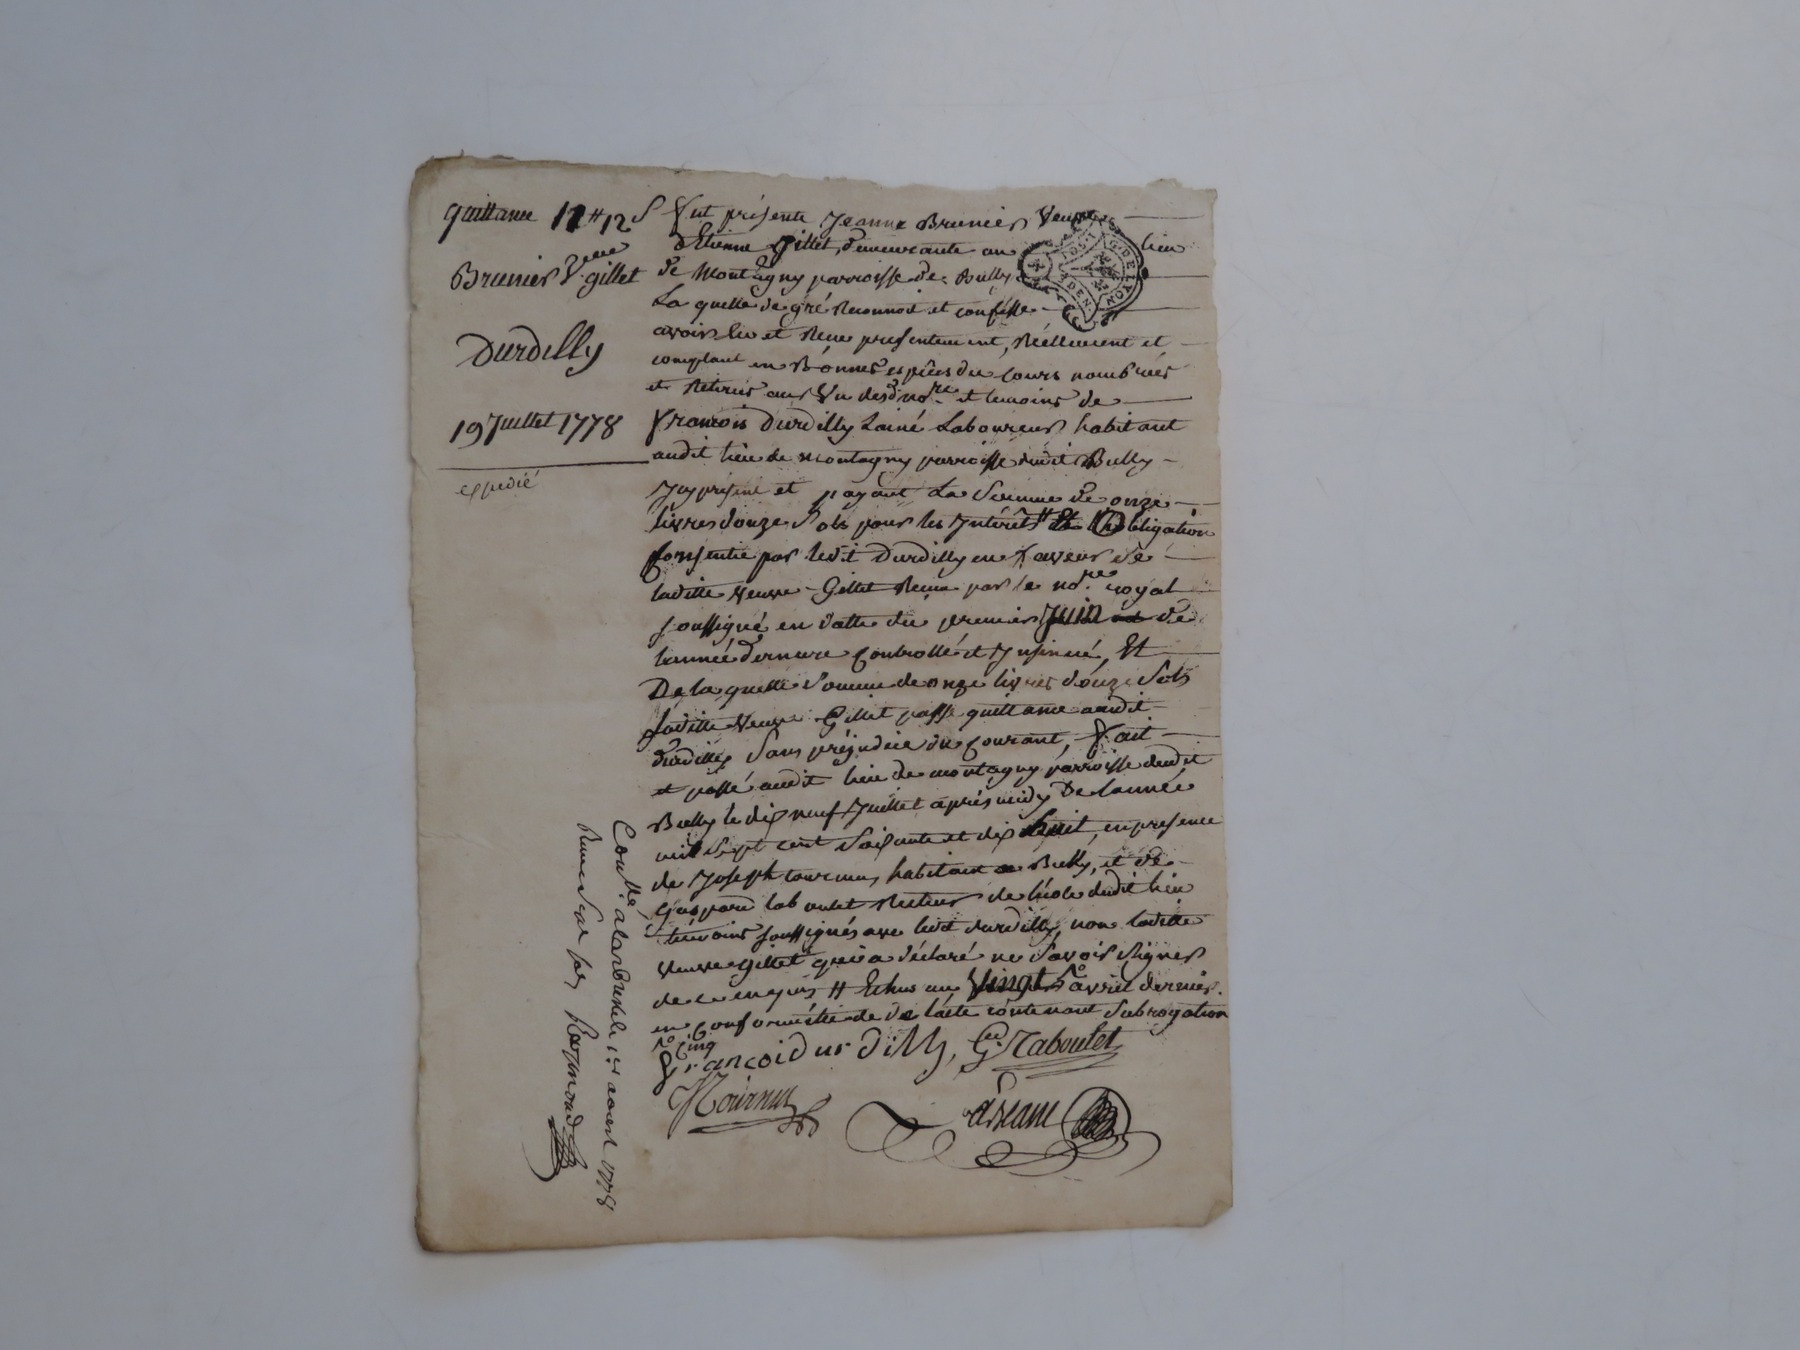 quittance 11# 12 s
Brunier Veuve gillet
Durdilly
19 Juillet 1778
expedié
Fut présente Jeanne Brunier Veuve
d'Etienne Gillet, demeurante au lieu
de Montagny parroisse de Bully
La quelle de gré Reconnoit et confesse
avoir eu et Receu presentement, Réellement et
comptant en Bonnes espèces du cours nombrées
et Retirées au Vu desd no.re et temoins de
François Durdilly Lainé Laboureur habitant
audit lieu de Montagny parroisse dudit Bully
Icy présent et payant La Somme de onze
livres douze Sols pour les Intérêts # de L'obligation
Consentie par ledit Durdilly en faveur de
laditte Veuve Gillet Reçue par le no.re royal
soussigné en datte du premier Juin de
l'année derniere Controllé et Insinué, Et
De la quelle Somme de onze livres douze Sols
laditte Veuve Gillet passe quittance audit
durdilly Sans préjudice du Courant, Fait
et passé audit lieu de montagny parroisse dudit
Bully le dix neuf Juillet après midy De l'année
mil Sept cent Soixante et dix huit, en presence
de Joseph tournus habitant a Bully, et de
Gaspard Raboulet Recteur de l'école dudit lieu
témoins soussignés avec ledit durdilly, non laditte
Veuve Gillet qui a déclaré ne Savoir Signer
de ce enquis # Echus au Vingt avril dernier.
en Conformitté de de l'acte contenant Subrogation
Cinq
Françoi Durdilly, G. Raboulet
J Tournus
Contlé a Larbresle le 1er aoust 1778
Receu Sept sols Raymond